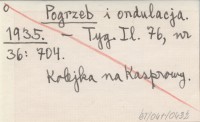 Pogrzeb i ondulacja.
1935. – Tyg. Il. 76, nr
36: 704.
Kolejka na Kasprowy.